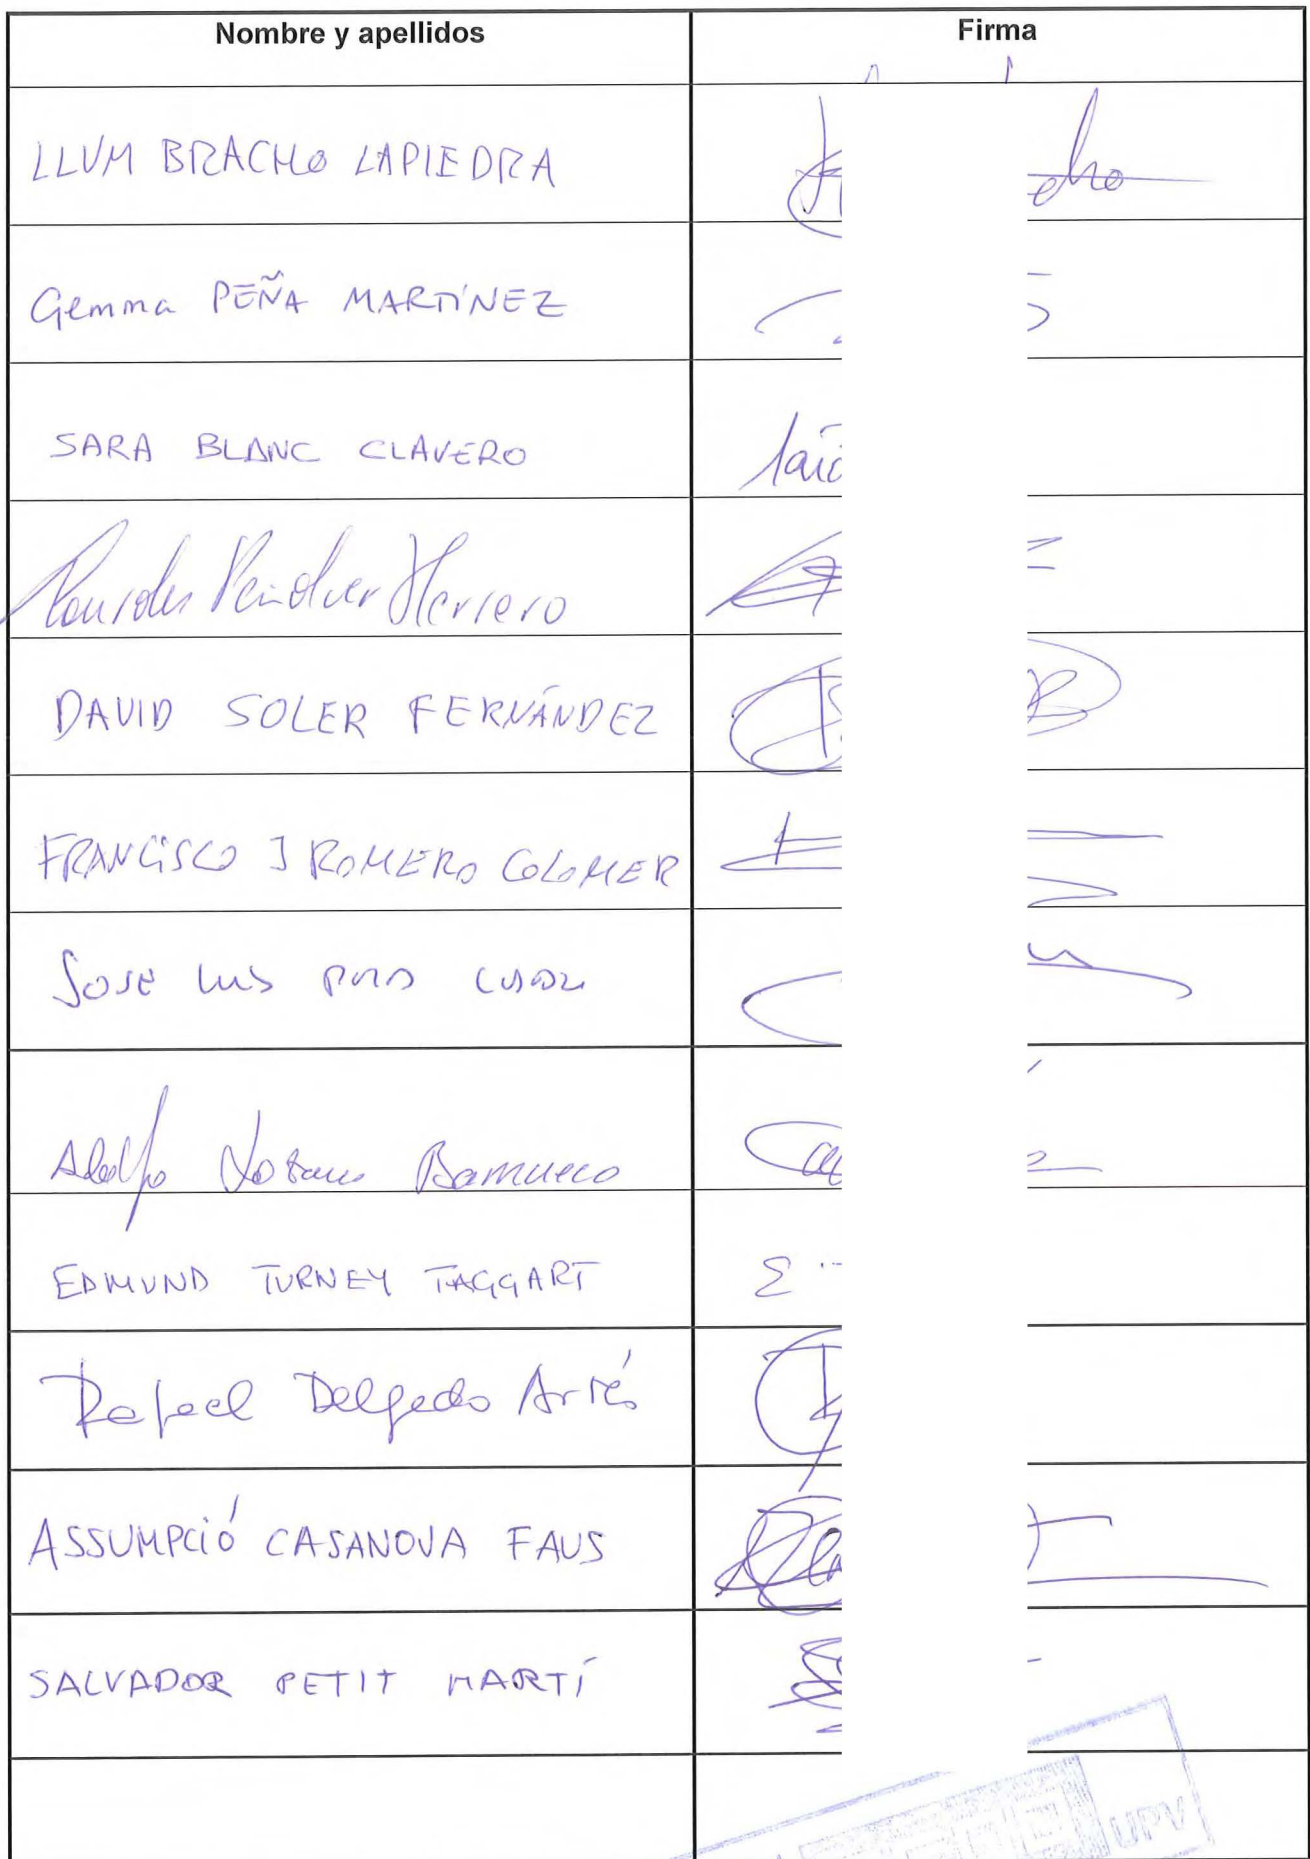 Nombre y apellidos Firma
LLUM BRACHO LAPIEDRA
Gemma PEÑA MARTÍNEZ
SARA BLANC CLAVERO
Lourdes Peñalver Herrero
DAVID SOLER FERNÁNDEZ
FRANCISCO J ROMERO COLOMER
JOSE LUIS
Adolfo Lozano
EDMUND TURNEY TAGGART
Rafael Delgado Artés
ASSUMPCIÓ CASANOVA FAUS
SALVADOR PETIT MARTÍ
UPV